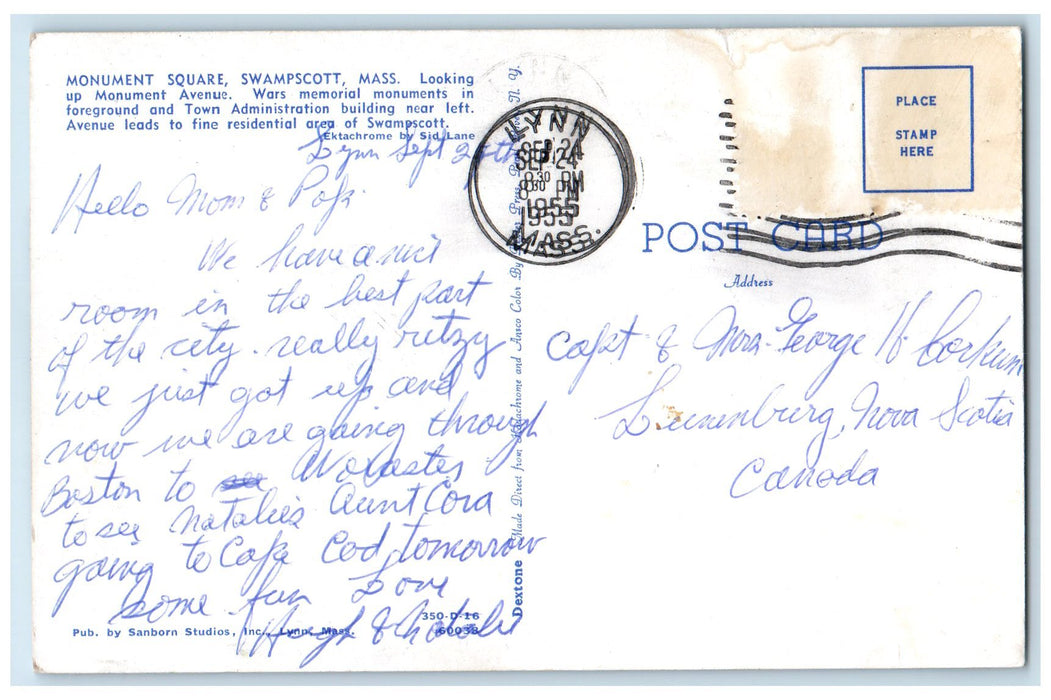 MONUMENT SQUARE, SWAMPSCOTT, MASS. Looking
up Monument Avenue. Wars memorial monuments in
foreground and Town Administration building near left.
Avenue leads to fine residential area of Swampscott.
Ektachrome by Sid Lane
Lynn Sept
Hello Mom & Pop
We have a nice
room in the best part
of the city. really ritzy
we just got up and
now we are going through
Boston to Worcester
to see Natalie's Aunt Cora
going to Cape Cod tomorrow
some fun Love
Hugh & Natalie
350-D-16
Pub. by Sanborn Studios, Inc., Lynn, Mass. 60038
Dextone Made Direct from Ektachrome and Ansco Color By N. Y.
LYNN
SEP 24
8 30 PM
1955
MASS.
PLACE
STAMP
HERE
POST CARD
Address
Capt & Mrs. George H. Corkum
Lunenburg, Nova Scotia
Canada